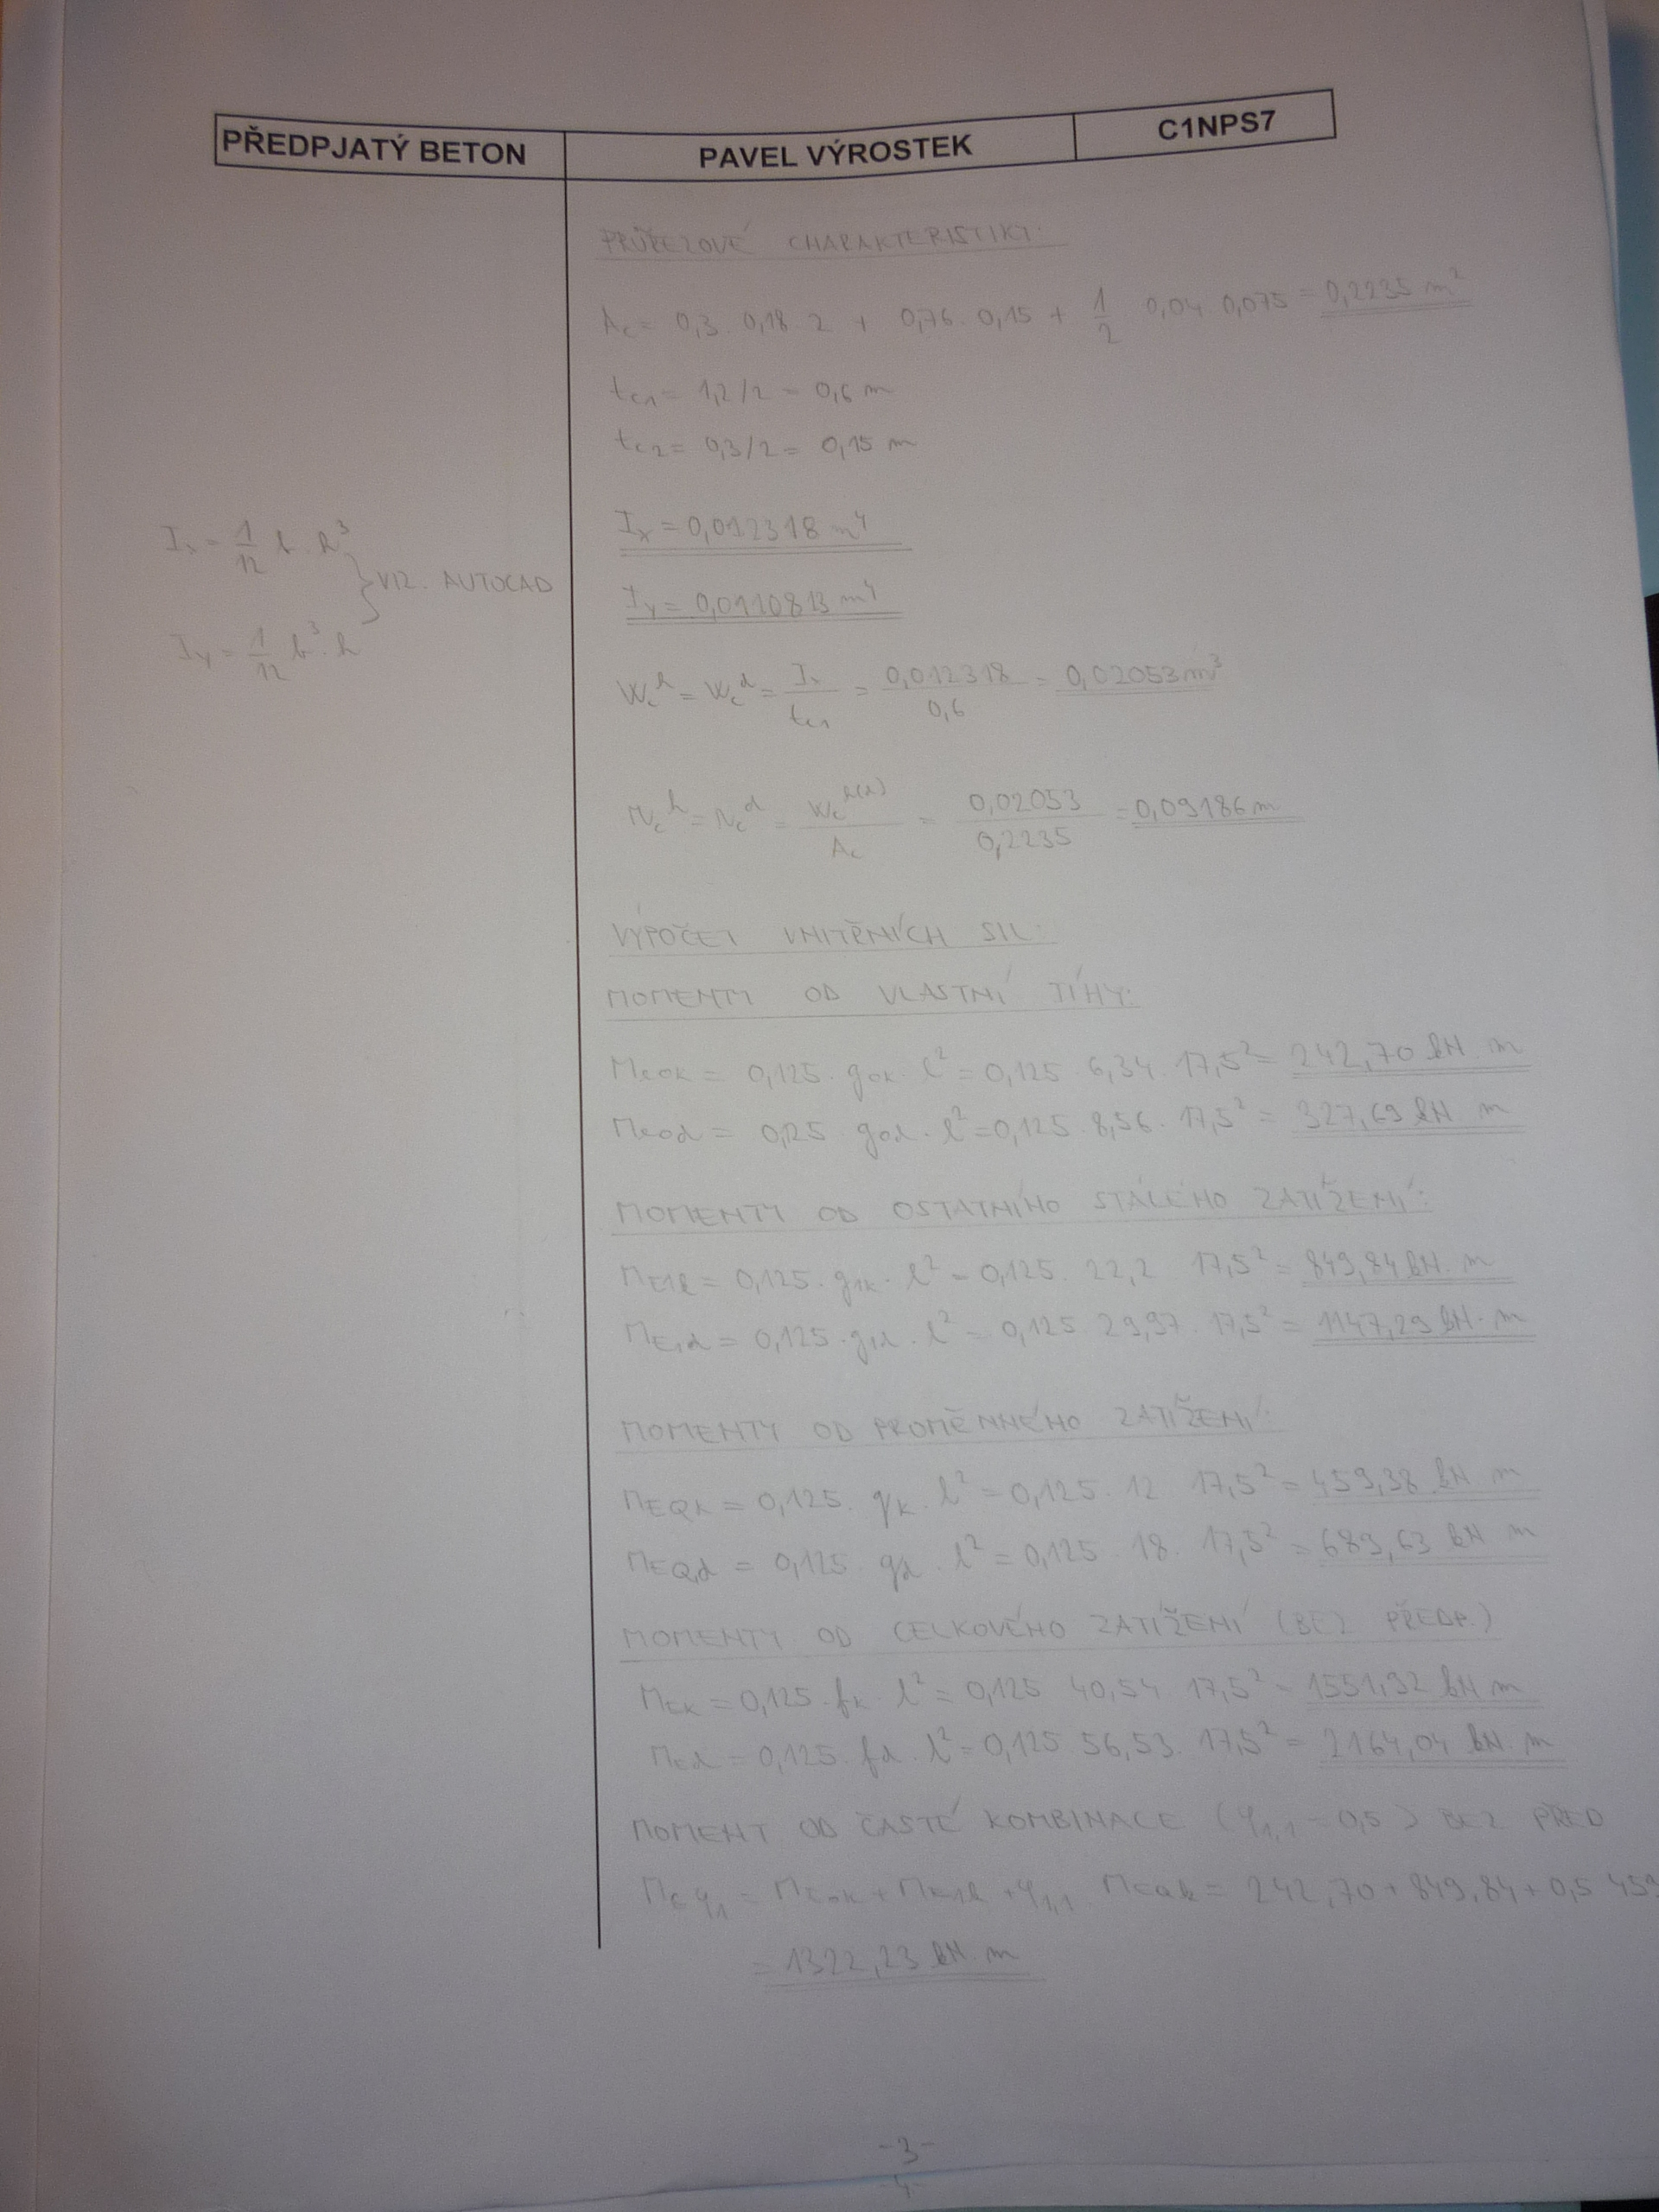 PŘEDPJATÝ BETON PAVEL VÝROSTEK C1NPS7
PRŮŘEZOVÉ CHARAKTERISTIKY:
Ac = 0,3 . 0,18 . 2 + 0,76 . 0,15 + 1/2 0,04 0,075 = 0,2235 m²
tc1 = 1,2/2 = 0,6 m
tc2 = 0,3/2 = 0,15 m
Ix = 1/12 b . h³
Iy = 1/12 b³ . h
} VIZ. AUTOCAD
Ix = 0,012318 m⁴
Iy = 0,0110813 m⁴
Wc^h = Wc^d = Ix/tc1 = 0,012318/0,6 = 0,02053 m³
Nc^h = Nc^d = Wc^h(d)/Ac = 0,02053/0,2235 = 0,09186 m
VÝPOČET VNITŘNÍCH SIL:
MOMENTY OD VLASTNÍ TÍHY:
MEOK = 0,125 . gok . l² = 0,125 . 6,34 . 17,5² = 242,70 kN . m
MEOd = 0,125 . god . l² = 0,125 . 8,56 . 17,5² = 327,69 kN . m
MOMENTY OD OSTATNÍHO STÁLÉHO ZATÍŽENÍ:
ME1k = 0,125 . g1k . l² = 0,125 . 22,2 17,5² = 849,84 kN . m
ME1d = 0,125 . g1d . l² = 0,125 29,97 . 17,5² = 1147,29 kN . m
MOMENTY OD PROMĚNNÉHO ZATÍŽENÍ:
MEQk = 0,125 . qk . l² = 0,125 . 12 . 17,5² = 459,38 kN m
MEQd = 0,125 . qd . l² = 0,125 . 18 . 17,5² = 689,63 kN m
MOMENTY OD CELKOVÉHO ZATÍŽENÍ (BEZ PŘEDP.)
MEK = 0,125 . fk . l² = 0,125 40,54 . 17,5² = 1551,92 kN m
MEd = 0,125 . fd . l² = 0,125 . 56,53 . 17,5² = 2164,04 kN . m
MOMENT OD ČASTÉ KOMBINACE (Ψ1,1 = 0,5) BEZ PŘED
MEΨ1 = MEok + ME1k + Ψ1,1 . MEQk = 242,70 + 849,84 + 0,5 459
= 1322,23 kN . m
-3-